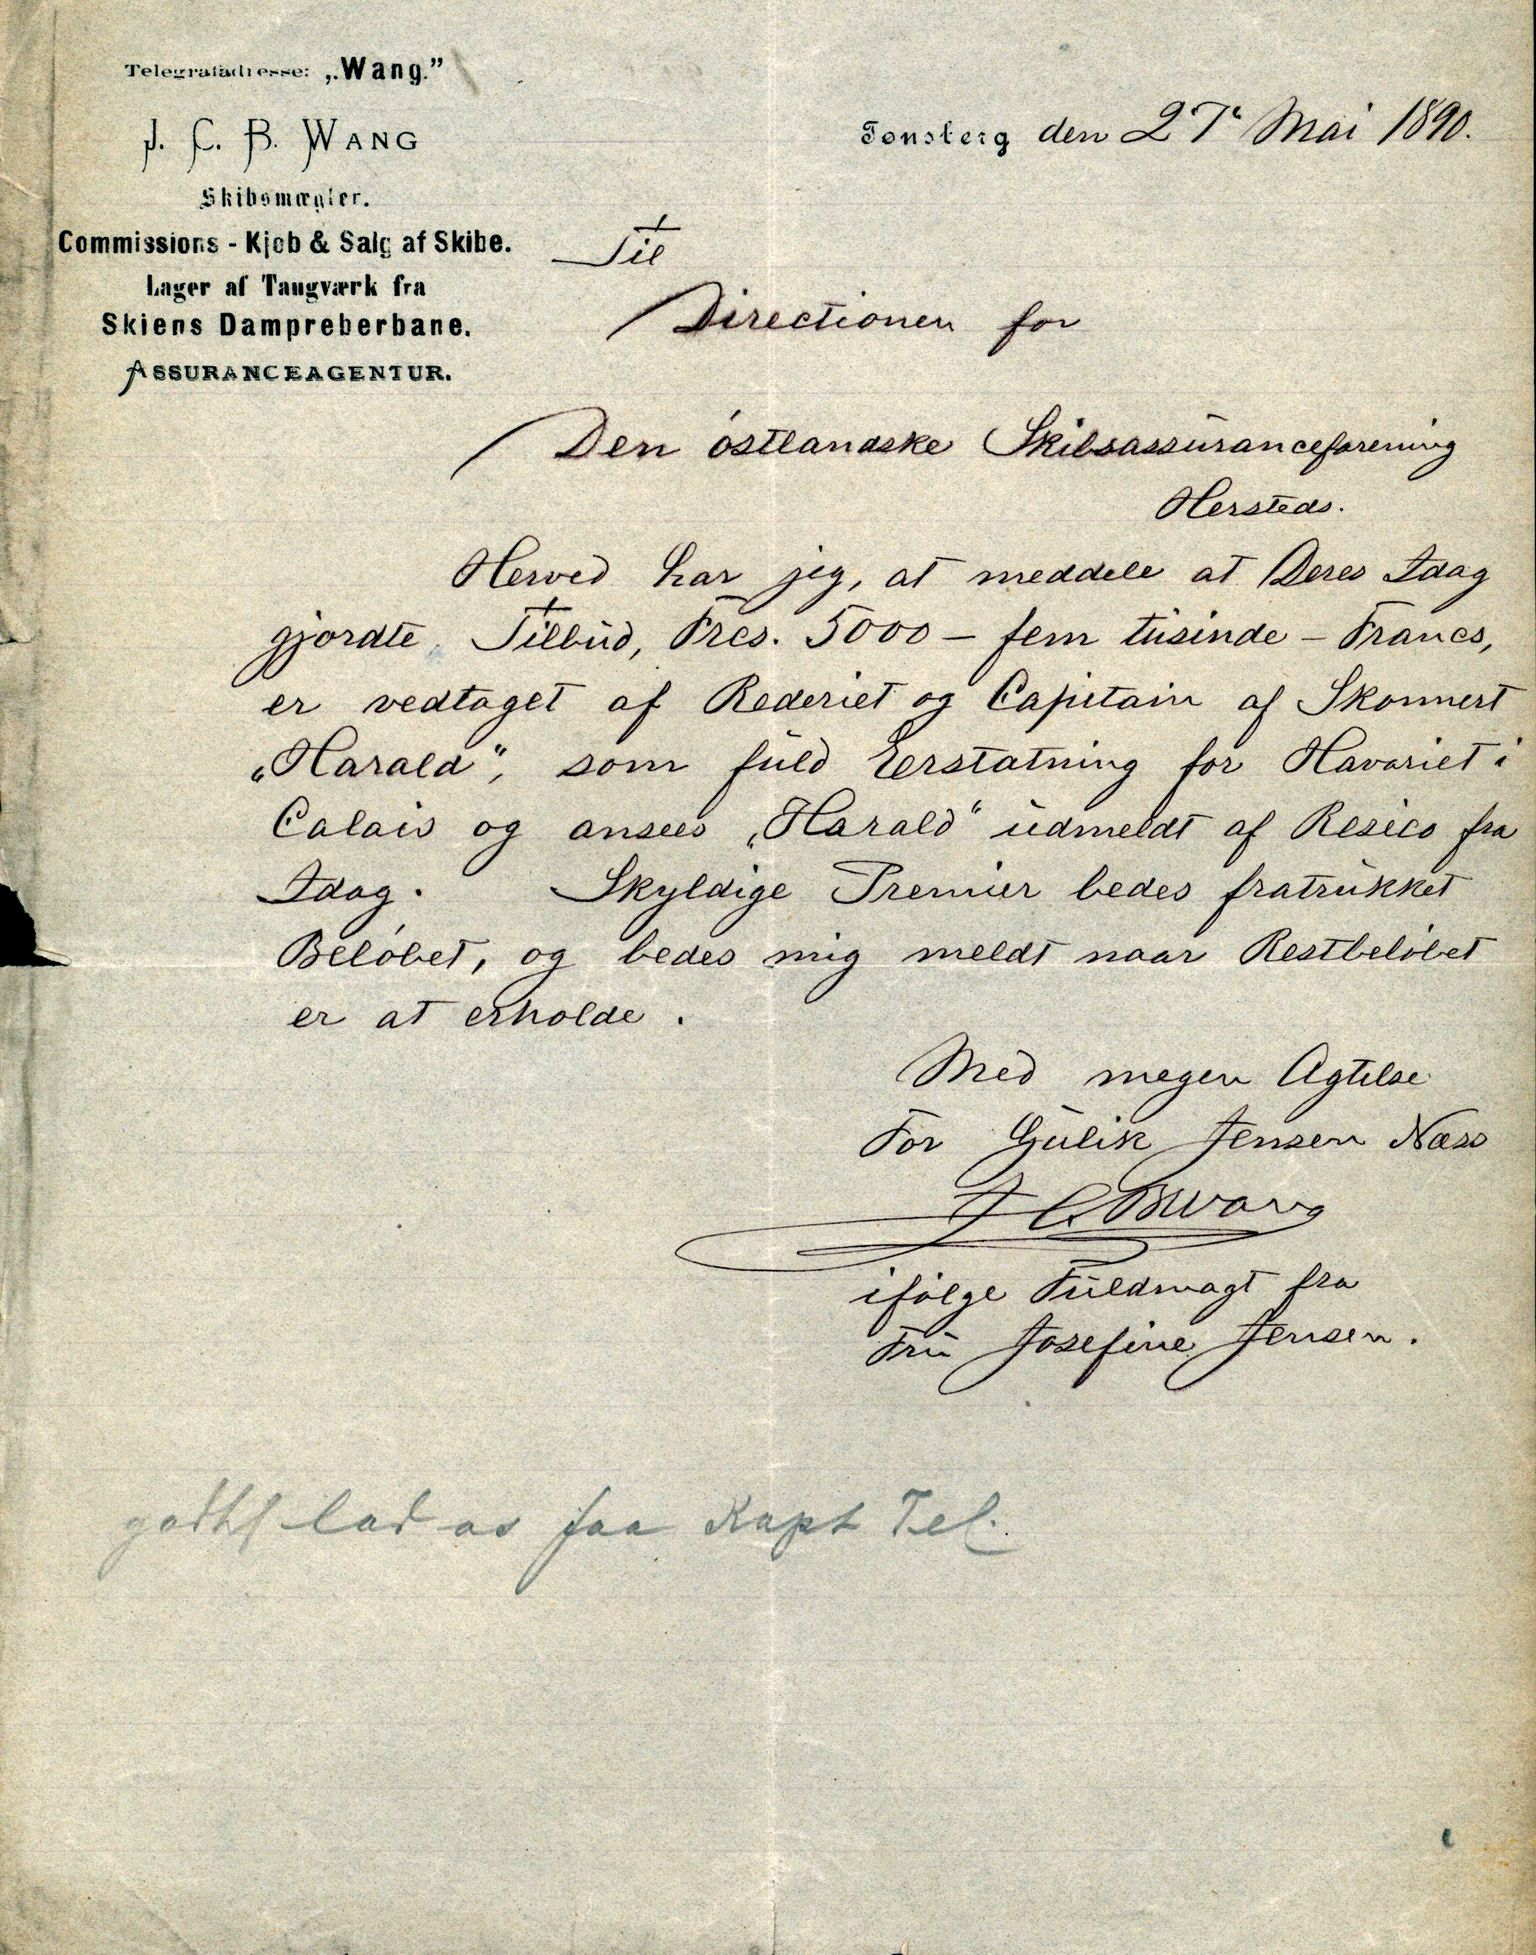 Telegrafadresse: „Wang."
J. C. B. WANG
Skibsmægler.
Commissions - Kjøb & Salg af Skibe.
Lager af Taugværk fra
Skiens Dampreberbane.
ASSURANCEAGENTUR.
Tønsberg den 27' Mai 1890.
Til
Directionen for
Den østlandske Skibsassuranceforening
Hersteds.
Herved har jeg, at meddele at Deres Idag
gjordte Tilbud, Frcs. 5000 – fem tusinde – Francs,
er vedtaget af Rederiet og Capitain af Skonnert
„Harald", som fuld Erstatning for Havariet i
Calais og ansees „Harald" udmeldt af Resico fra
Idag. Skyldige Premier bedes fratrukket
Beløbet, og bedes mig meldt naar Restbeløbet
er at erholde.
Med megen Agtelse
For Gulik Jensen Næss
J C B Wang
ifølge Fuldmagt fra
Fru Josefine Jensen.
lad os faa Kapt Tel.